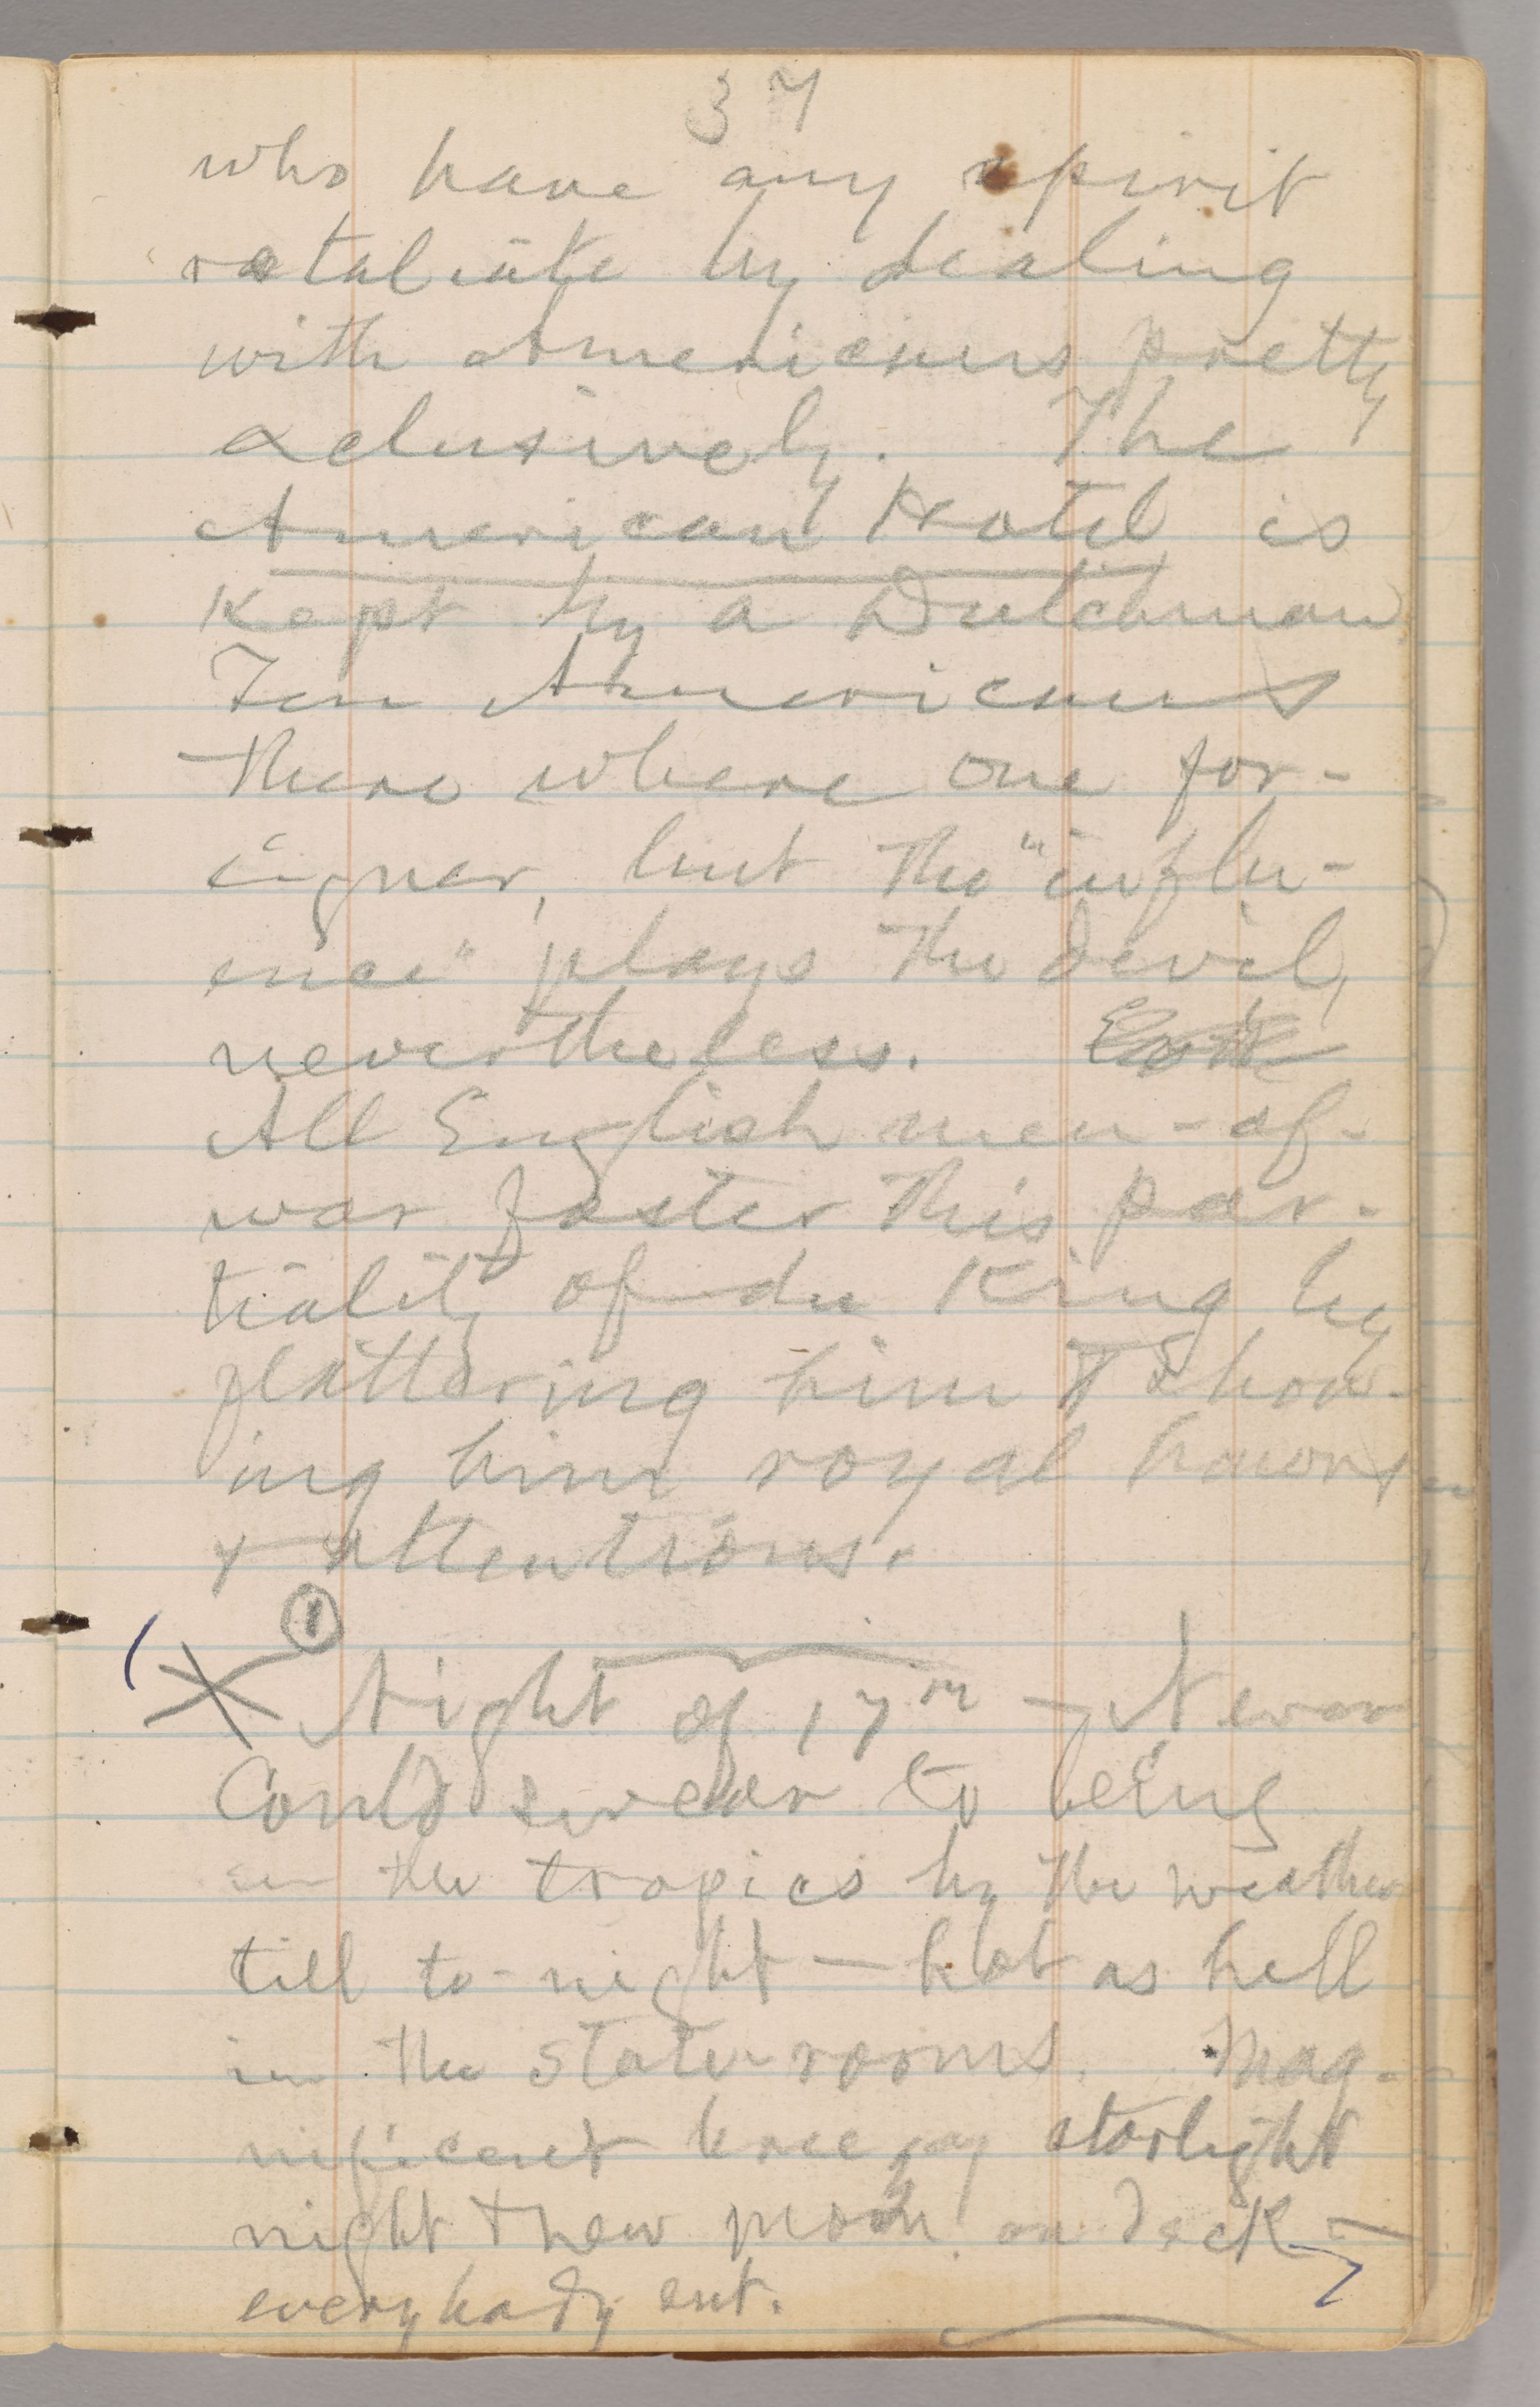 37
who have any spirit
retaliate by dealing
with Americans pretty
exclusively. The
American Hotel is
kept by a Dutchman.
Ten Americans
there where one for-
eigner, but the "influ-
ence" plays the devil,
nevertheless.
All English men-of-
war foster this par-
tiality of du King by
flattering him & show-
ing him royal honors
& attentions.
1
Night of 17th — Never
Could swear to being
in the tropics by the weather
till to-night — hot as hell
in the state-rooms. Mag-
nificent breezy starlight
night & new moon on deck —
everybody out.